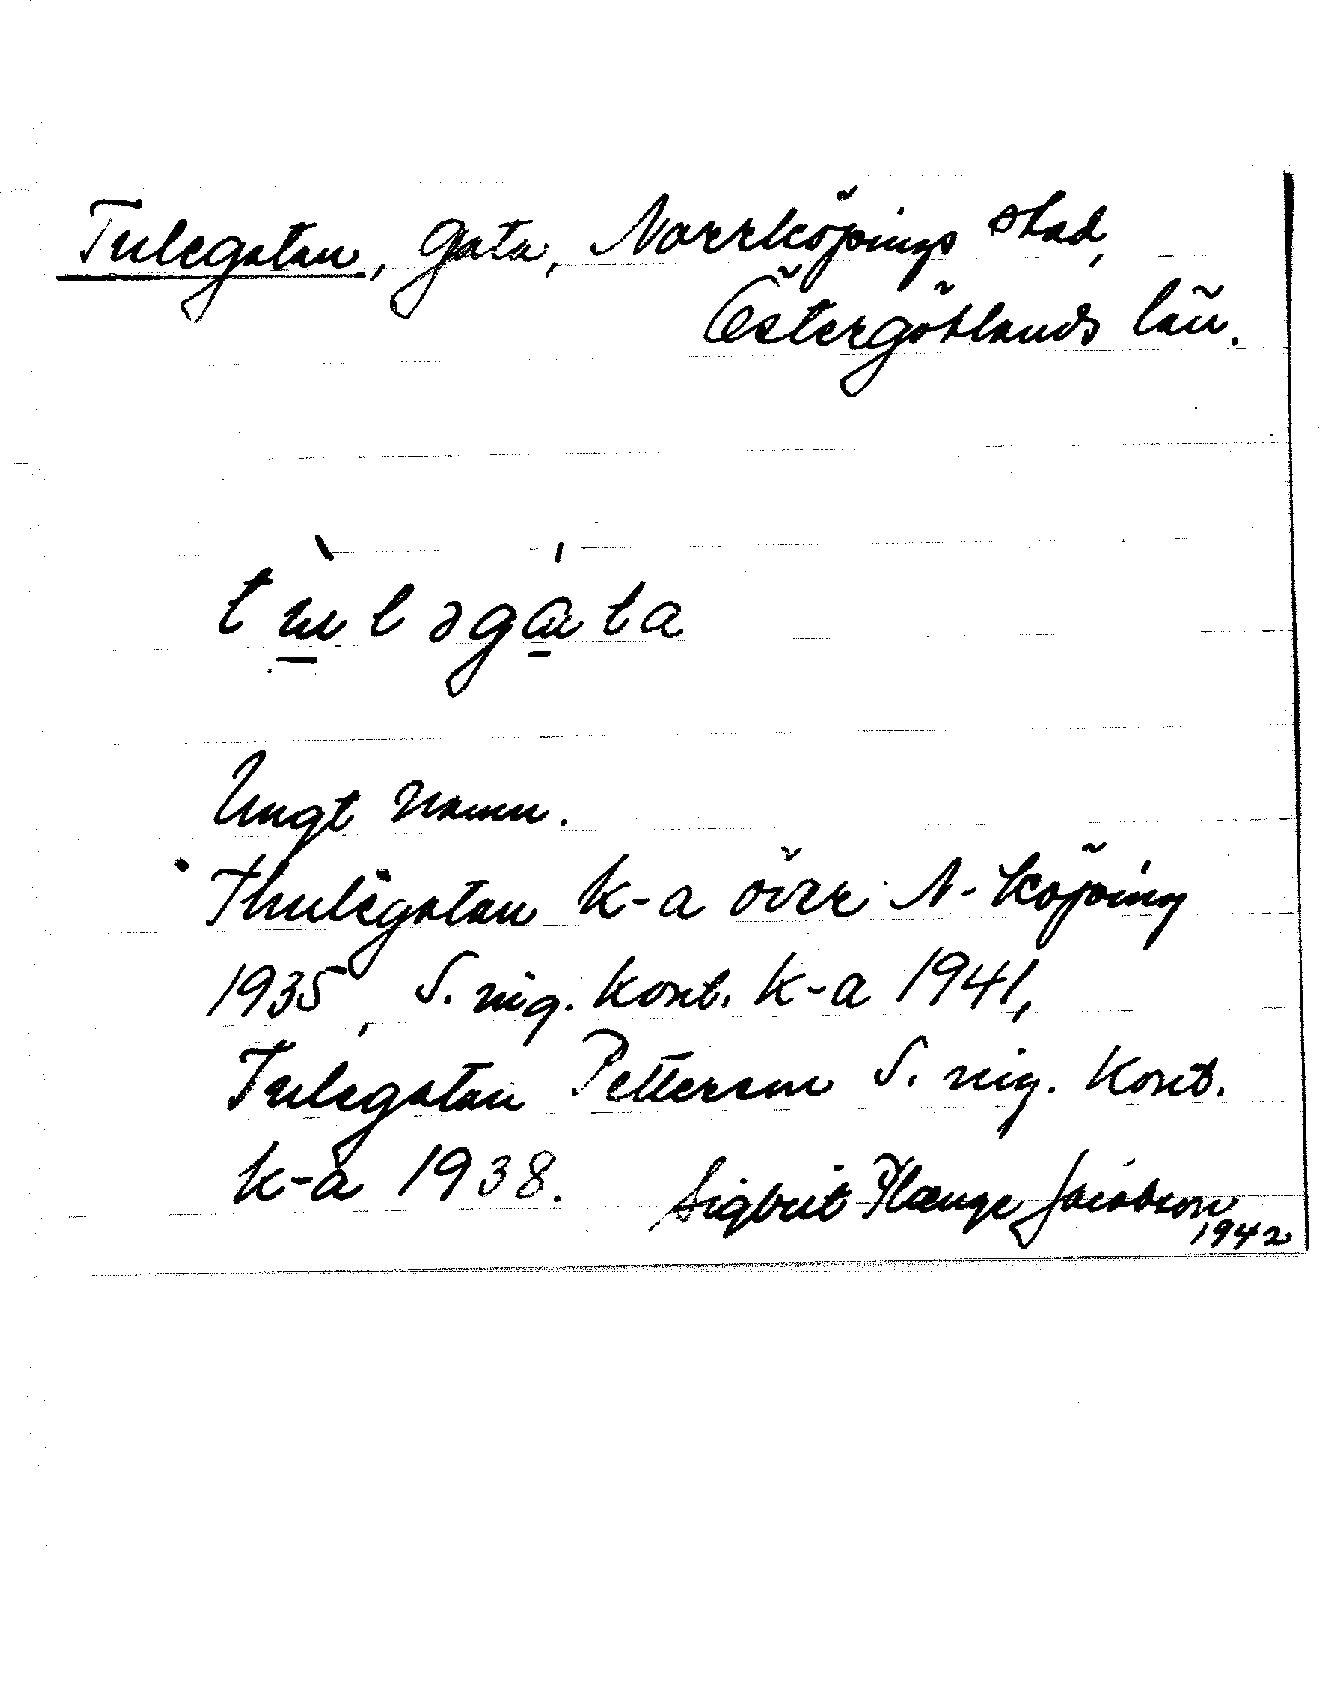 Tulegatan, Gata, Norrköpings stad,
Östergötlands län.
tùləgáta
Ungt namn.
Thulegatan k-a över N-köping
1935, S. ing. kont. k-a 1941,
Tulegatan Petterson S. ing. kont.
k-a 1938. Sigbrit Plænge Jacobson
1942